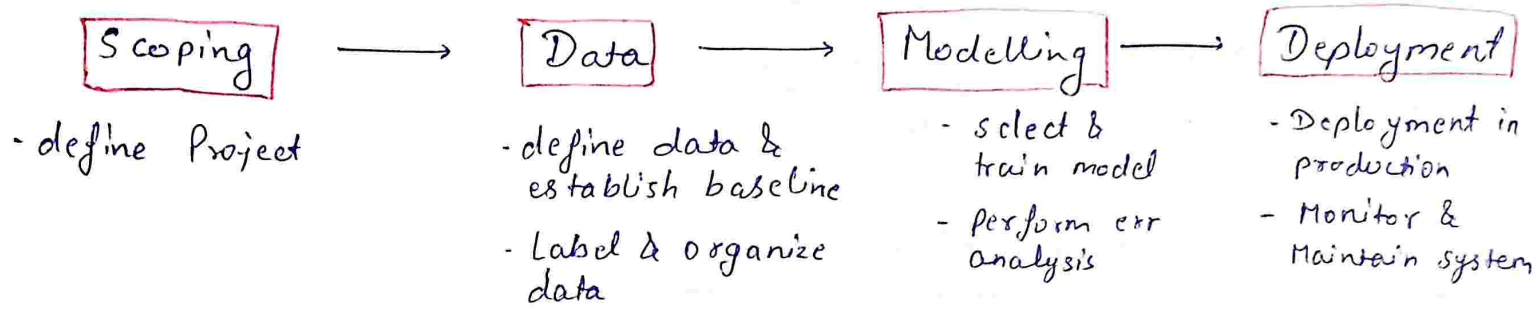 Scoping
Data
Modelling
Deployment
- define Project
- define data &
establish baseline
- Label & organize
data
- select &
train model
- Perform err
analysis
- Deployment in
production
- Monitor &
Maintain system